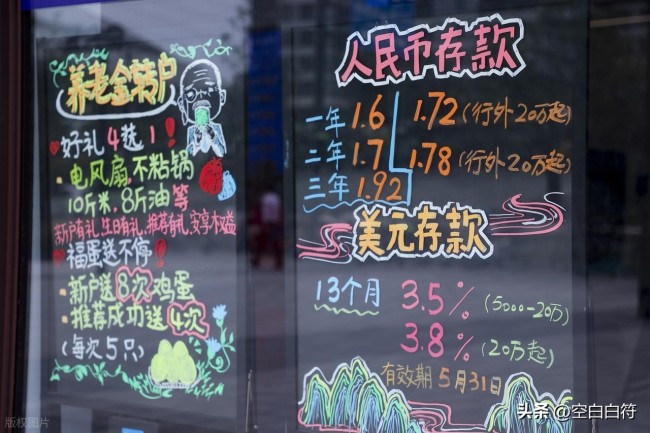 养老金转户
好礼4选1！
·电风扇、不粘锅
10斤米、8斤油等
新户有礼、生日有礼、推荐有礼、安享木权益
福蛋送不停！
·新户送8次鸡蛋
·推荐成功送4次
(每次5只)
人民币存款
一年 1.6 1.72(行外20万起)
二年 1.7 1.78(行外20万起)
三年 1.92
美元存款
13个月 3.5% (5000-20万)
3.8% (20万起)
有效期 5月31日
版权图片
头条 @空白白符